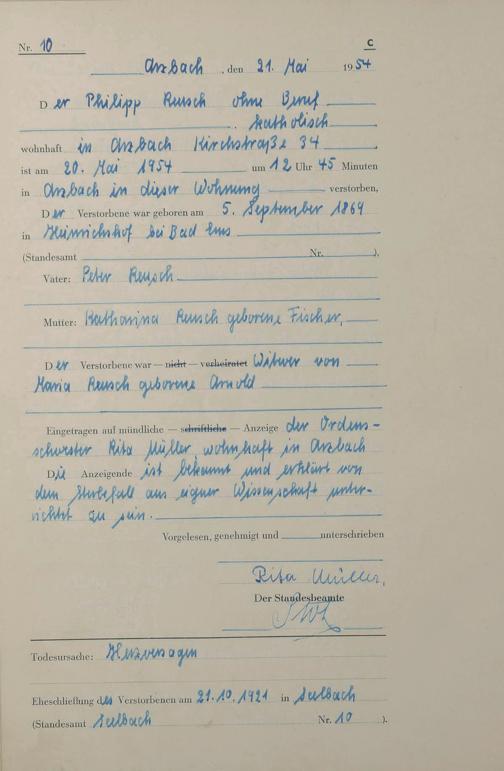 Nr. 10 C
Arzbach, den 21. Mai 1954
Der Philipp Reusch ohne Beruf
katholisch
wohnhaft in Arzbach Kirchstraße 34
ist am 20. Mai 1954 um 12 Uhr 45 Minuten
in Arzbach in dieser Wohnung verstorben,
Der Verstorbene war geboren am 5. September 1869
in Heinrichshof bei Bad Ems
(Standesamt Nr. ).
Vater: Peter Reusch
Mutter: Katharina Reusch geborene Fischer,
Der Verstorbene war — nicht — verheiratet Witwer von
Maria Reusch geborene Arnold
Eingetragen auf mündliche — schriftliche — Anzeige der Ordens-
schwester Rita Müller, wohnhaft in Arzbach
Die Anzeigende ist bekannt und erklärt von
dem Sterbefall aus eigner Wissenschaft unter-
richtet zu sein.
Vorgelesen, genehmigt und unterschrieben
Rita Müller,
Der Standesbeamte
Todesursache: Herzversagen
Eheschließung des Verstorbenen am 21.10.1921 in Seelbach
(Standesamt Seelbach Nr. 10 ).